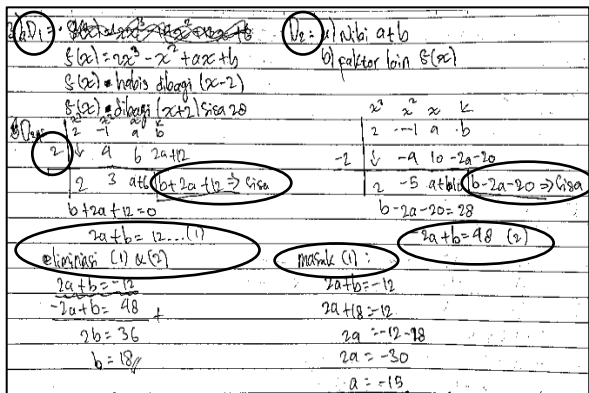 D1 =
f(x) = 2x³ - x² + ax + b
f(x) habis dibagi (x-2)
f(x) dibagi (x+2) sisa 28
D2 = a) Nilai a+b
b) faktor lain f(x)
x³ x² x
2 -1 a b
2 ↓ 4 6 2a+12
2 3 a+6 b+2a+12 ⇒ Sisa
b+2a+12=0
2a+b= 12...(1)
x³ x² x k
2 -1 a b
-2 ↓ -4 10 -2a-20
2 -5 a+10 b-2a-20 ⇒ Sisa
b-2a-20=28
-2a+b=48 (2)
eliminasi (1) & (2)
2a+b=-12
-2a+b= 48 +
2b=36
b=18//
masuk (1) :
2a+b=-12
2a+18=-12
2a =-12-18
2a = -30
a = -15